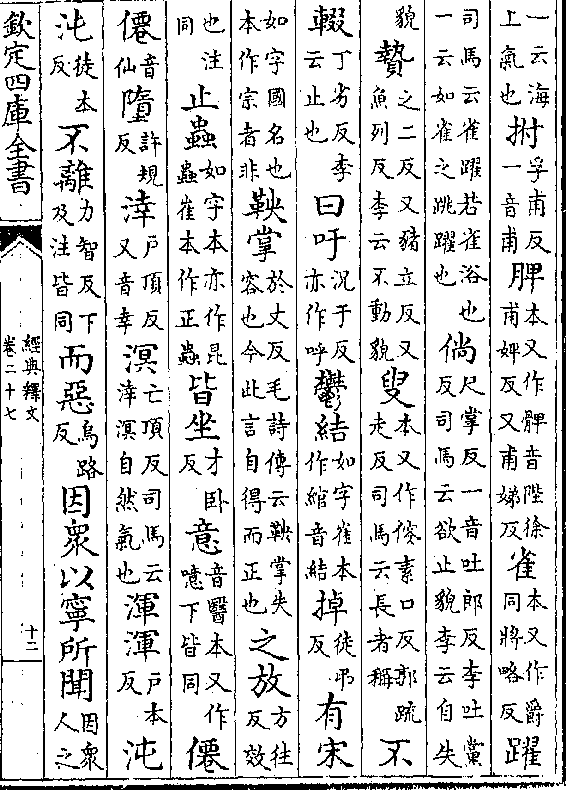 一云海上氣也拊孚甫反一音甫脾本又作髀音陛徐甫婢反又甫娣反雀本又作爵同將略反躍
司馬云雀躍若雀浴也一云如雀之跳躍也倘尺掌反一音吐郎反李吐黨反司馬云欲止貌李云自失
貌贄之二反又豬立反又魚列反李云不動貌叟本又作傁素口反郭疏走反司馬云長者稱不
輟丁劣反李云止也曰吁況于反亦作呼鬱結如字崔本作綰音結掉徒弔反有宋
如字國名也本作宗者非鞅掌於丈反毛詩傳云鞅掌失容也今此言自得而正也之放方往反效
也注同止蟲如字本亦作昆蟲崔本作正蟲皆坐才卧反意音醫本又作噫下皆同僊
僊音仙墮許規反涬戶頂反又音幸溟亡頂反司馬云涬溟自然氣也渾渾戶本反沌
沌徒本反不離力智反下及注皆同而惡烏路反因衆以寧所聞因衆人之
欽定四庫全書
經典釋文
卷二十七
十二